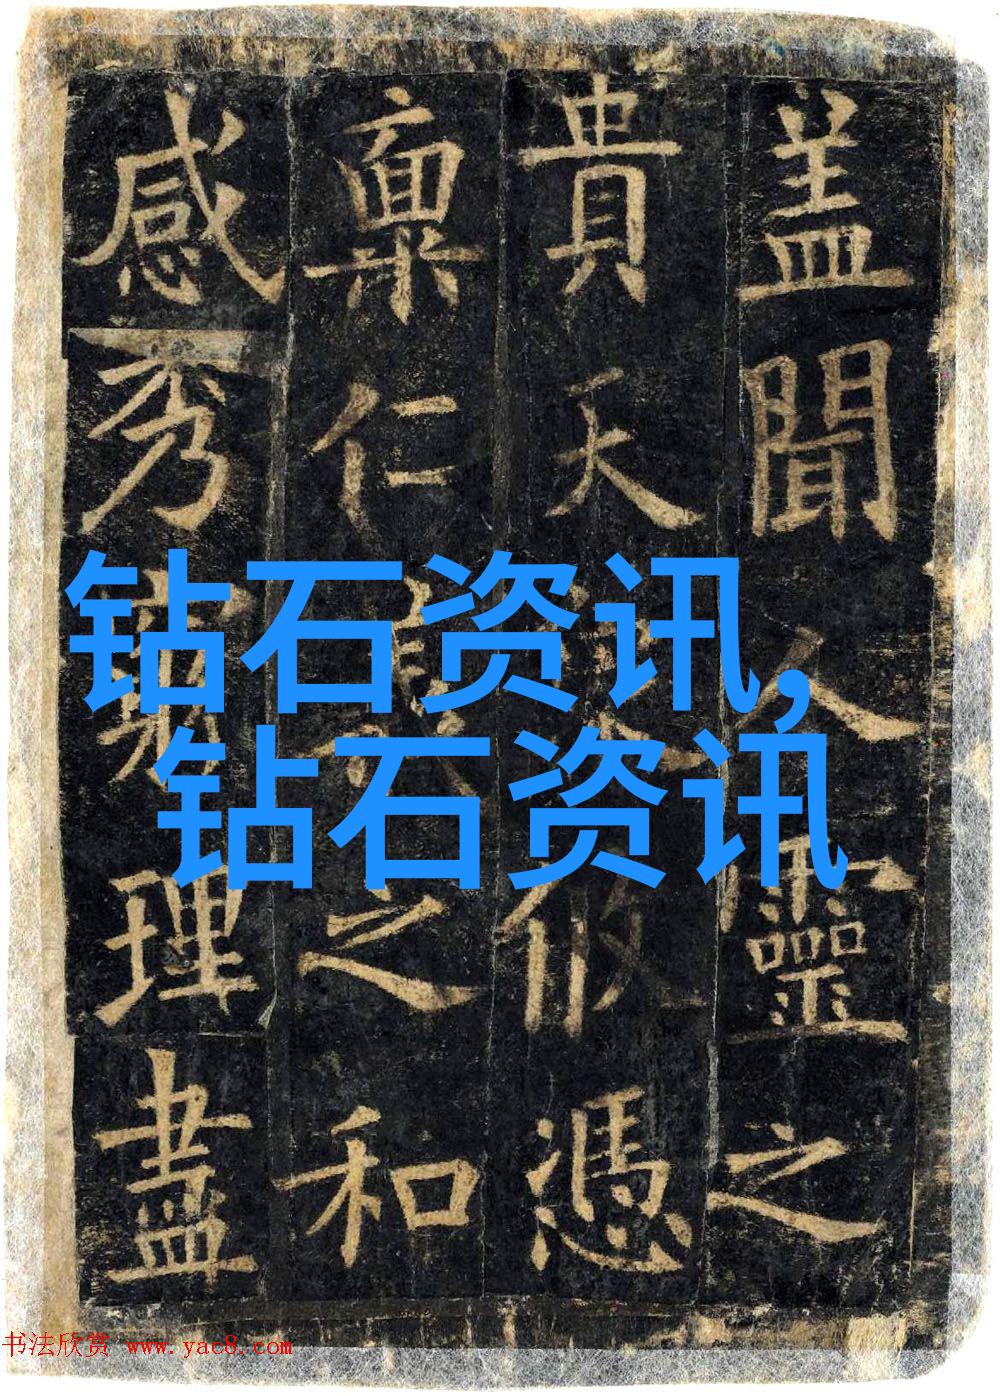 盖聞人靈之
貴天攸憑
稟仁之和
感秀理盡
钻石资讯,
钻石资讯
书法欣赏 www.yac8.com